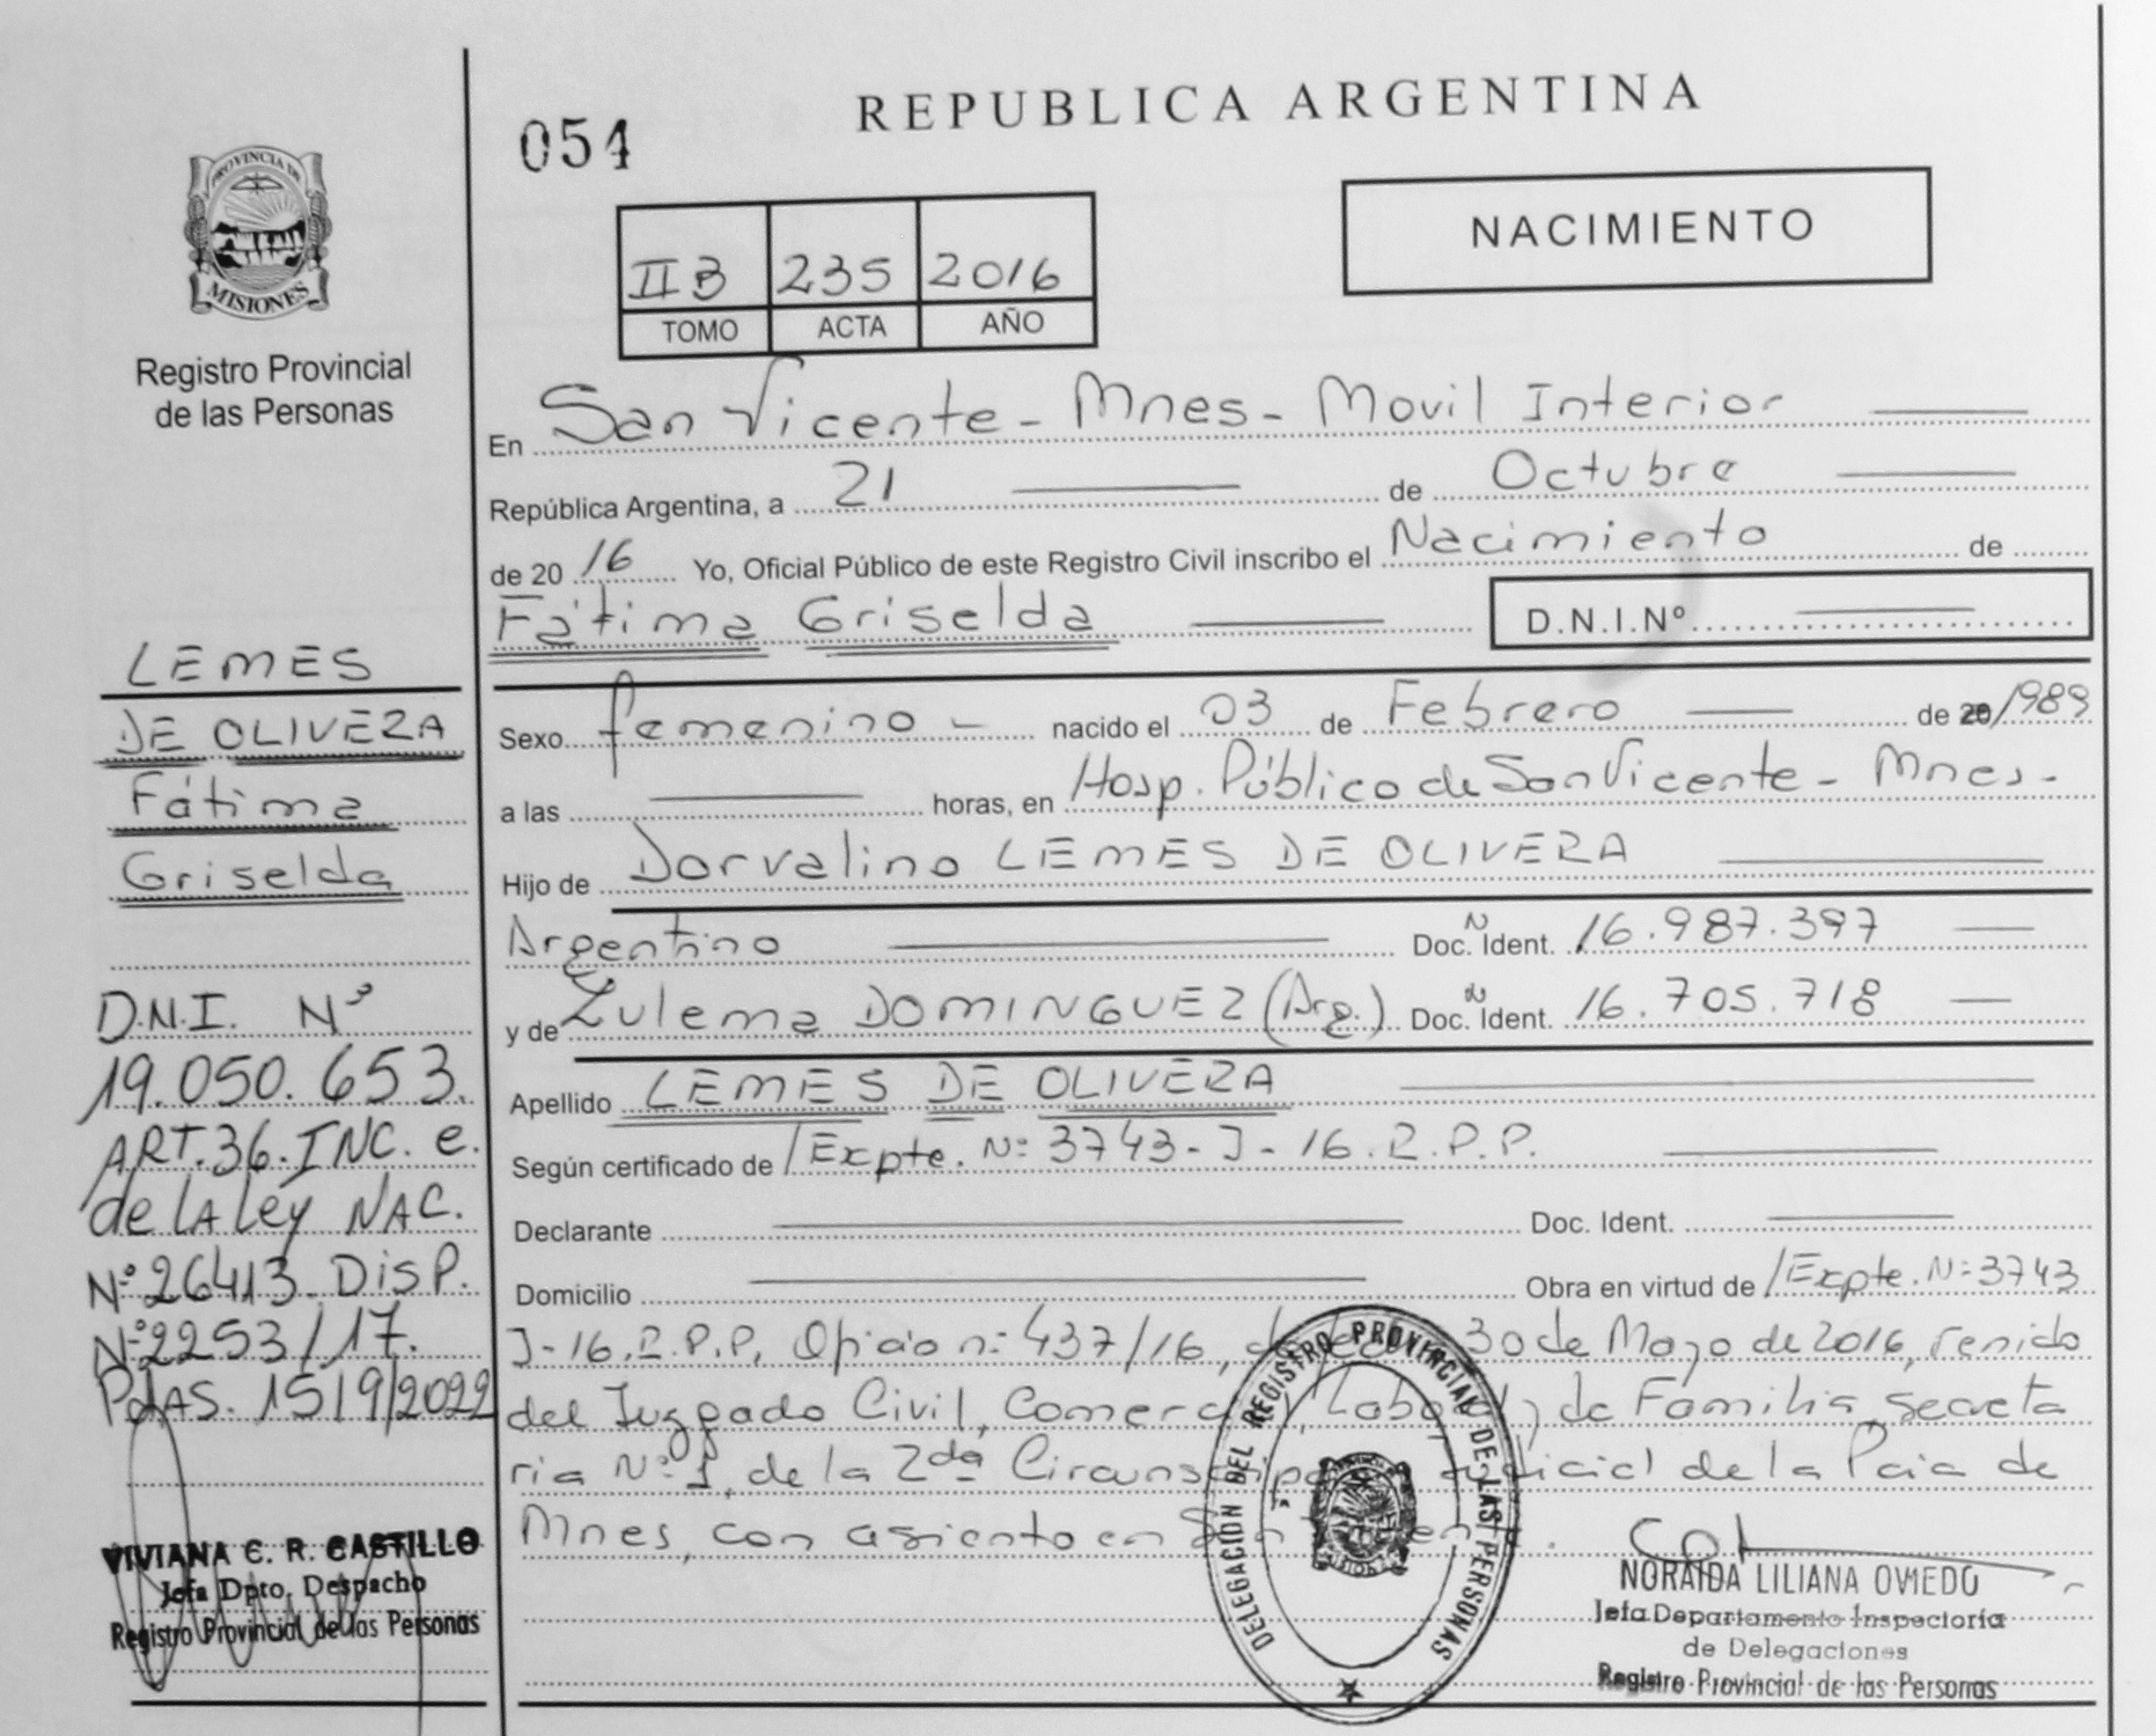 PROVINCIA DE
MISIONES
Registro Provincial
de las Personas
LEMES
DE OLIVERA
Fátima
Griselda
D.N.I. Nº
19.050.653.
ART.36.INC. e.
de LA Ley NAC.
Nº26413. DISP.
Nº2253/17.
PdAS. 15/9/2022
VIVIANA C. R. CASTILLO
Jefa Dpto. Despacho
Registro Provincial de las Personas
054
REPUBLICA ARGENTINA
NACIMIENTO
II B 235 2016
TOMO ACTA AÑO
En San Vicente - Mnes - Movil Interior
República Argentina, a 21 de Octubre
de 20 16 Yo, Oficial Público de este Registro Civil inscribo el Nacimiento de
Fátima Griselda D.N.I.Nº
Sexo femenino - nacido el 03 de Febrero de 20/1989
a las horas, en Hosp. Público de San Vicente - Mnes -
Hijo de Dorvalino LEMES DE OLIVERA
Argentino Doc. Ident. 16.987.397
y de Zulema DOMINGUEZ (Arg.) Doc. Ident. 16.705.718
Apellido LEMES DE OLIVERA
Según certificado de /Expte. Nº 3743-J-16.R.P.P.
Declarante Doc. Ident.
Domicilio Obra en virtud de /Expte. Nº 3743
J-16.R.P.P, Oficio nº 437/16, 30 de Mayo de 2016, venido
del Juzgado Civil, Comercial, Laboral y de Familia, secreta
ria Nº 1, de la 2da Circunscripción Judicial de la Pcia de
Mnes, con asiento en
DELEGACIÓN DEL REGISTRO PROVINCIAL DE LAS PERSONAS
NORAIDA LILIANA OVIEDO
Jefa Departamento Inspectoría
de Delegaciones
Registro Provincial de las Personas